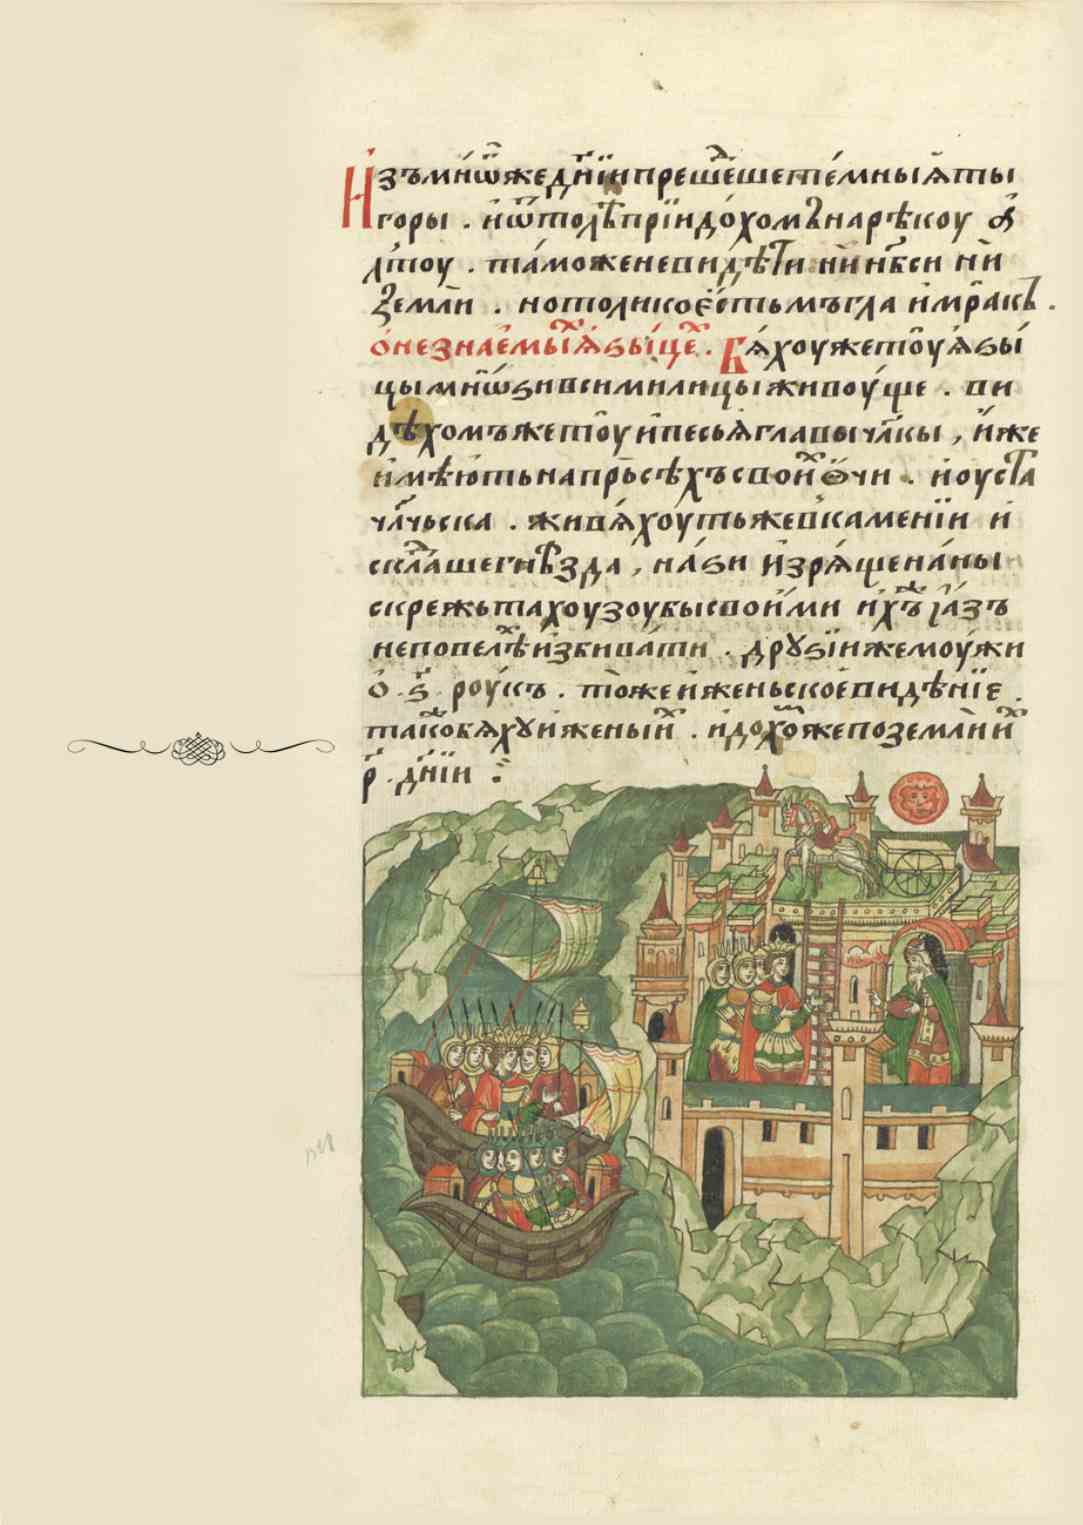 Изъ мнѡ҃ же дн҃їи прешеⷣше те́мныѧ ты
горы . и҆ ѿтолѣ прїидо́хомъ на рѣкоу
лтоу . та́може не видѣти ни нб҃си ни
земли . но толико е҆сть мъгла и҆ мракъ .
ѡ҆ незнае́мыⷯ ѧ҆зы́цеⷯ . Бѧ́хоу же тоу ѧ҆зы́
цы мнѡ́зи всими лицы живоу́ще . ви
дѣхомъ же тоу и҆ песьѧ главы чл҃кы , и҆́же
и҆мѣють на пръсѣхъ свои́ⷯ ѻ҆́чи . и҆ оуста
чл҃чьска . живѧ́хоуть же в каменїи и҆
скла́ше гнѣзда , на́зи и҆зрѧ́ще на ны
скрежьтахоу зоубы свои́ми и҆́хъже а҆́зъ
не повелѣⷯ и҆збива́ти . дрꙋзїи же моу́жи
ѡ҆ . ѕ҃ . роу́къ . то́же и҆ женьское видѣнїе .
тако бѧхꙋ и҆ жены и҆ⷯ . и҆дохоⷨ же по земли и҆ⷯ
р҃ . дн҃їи :